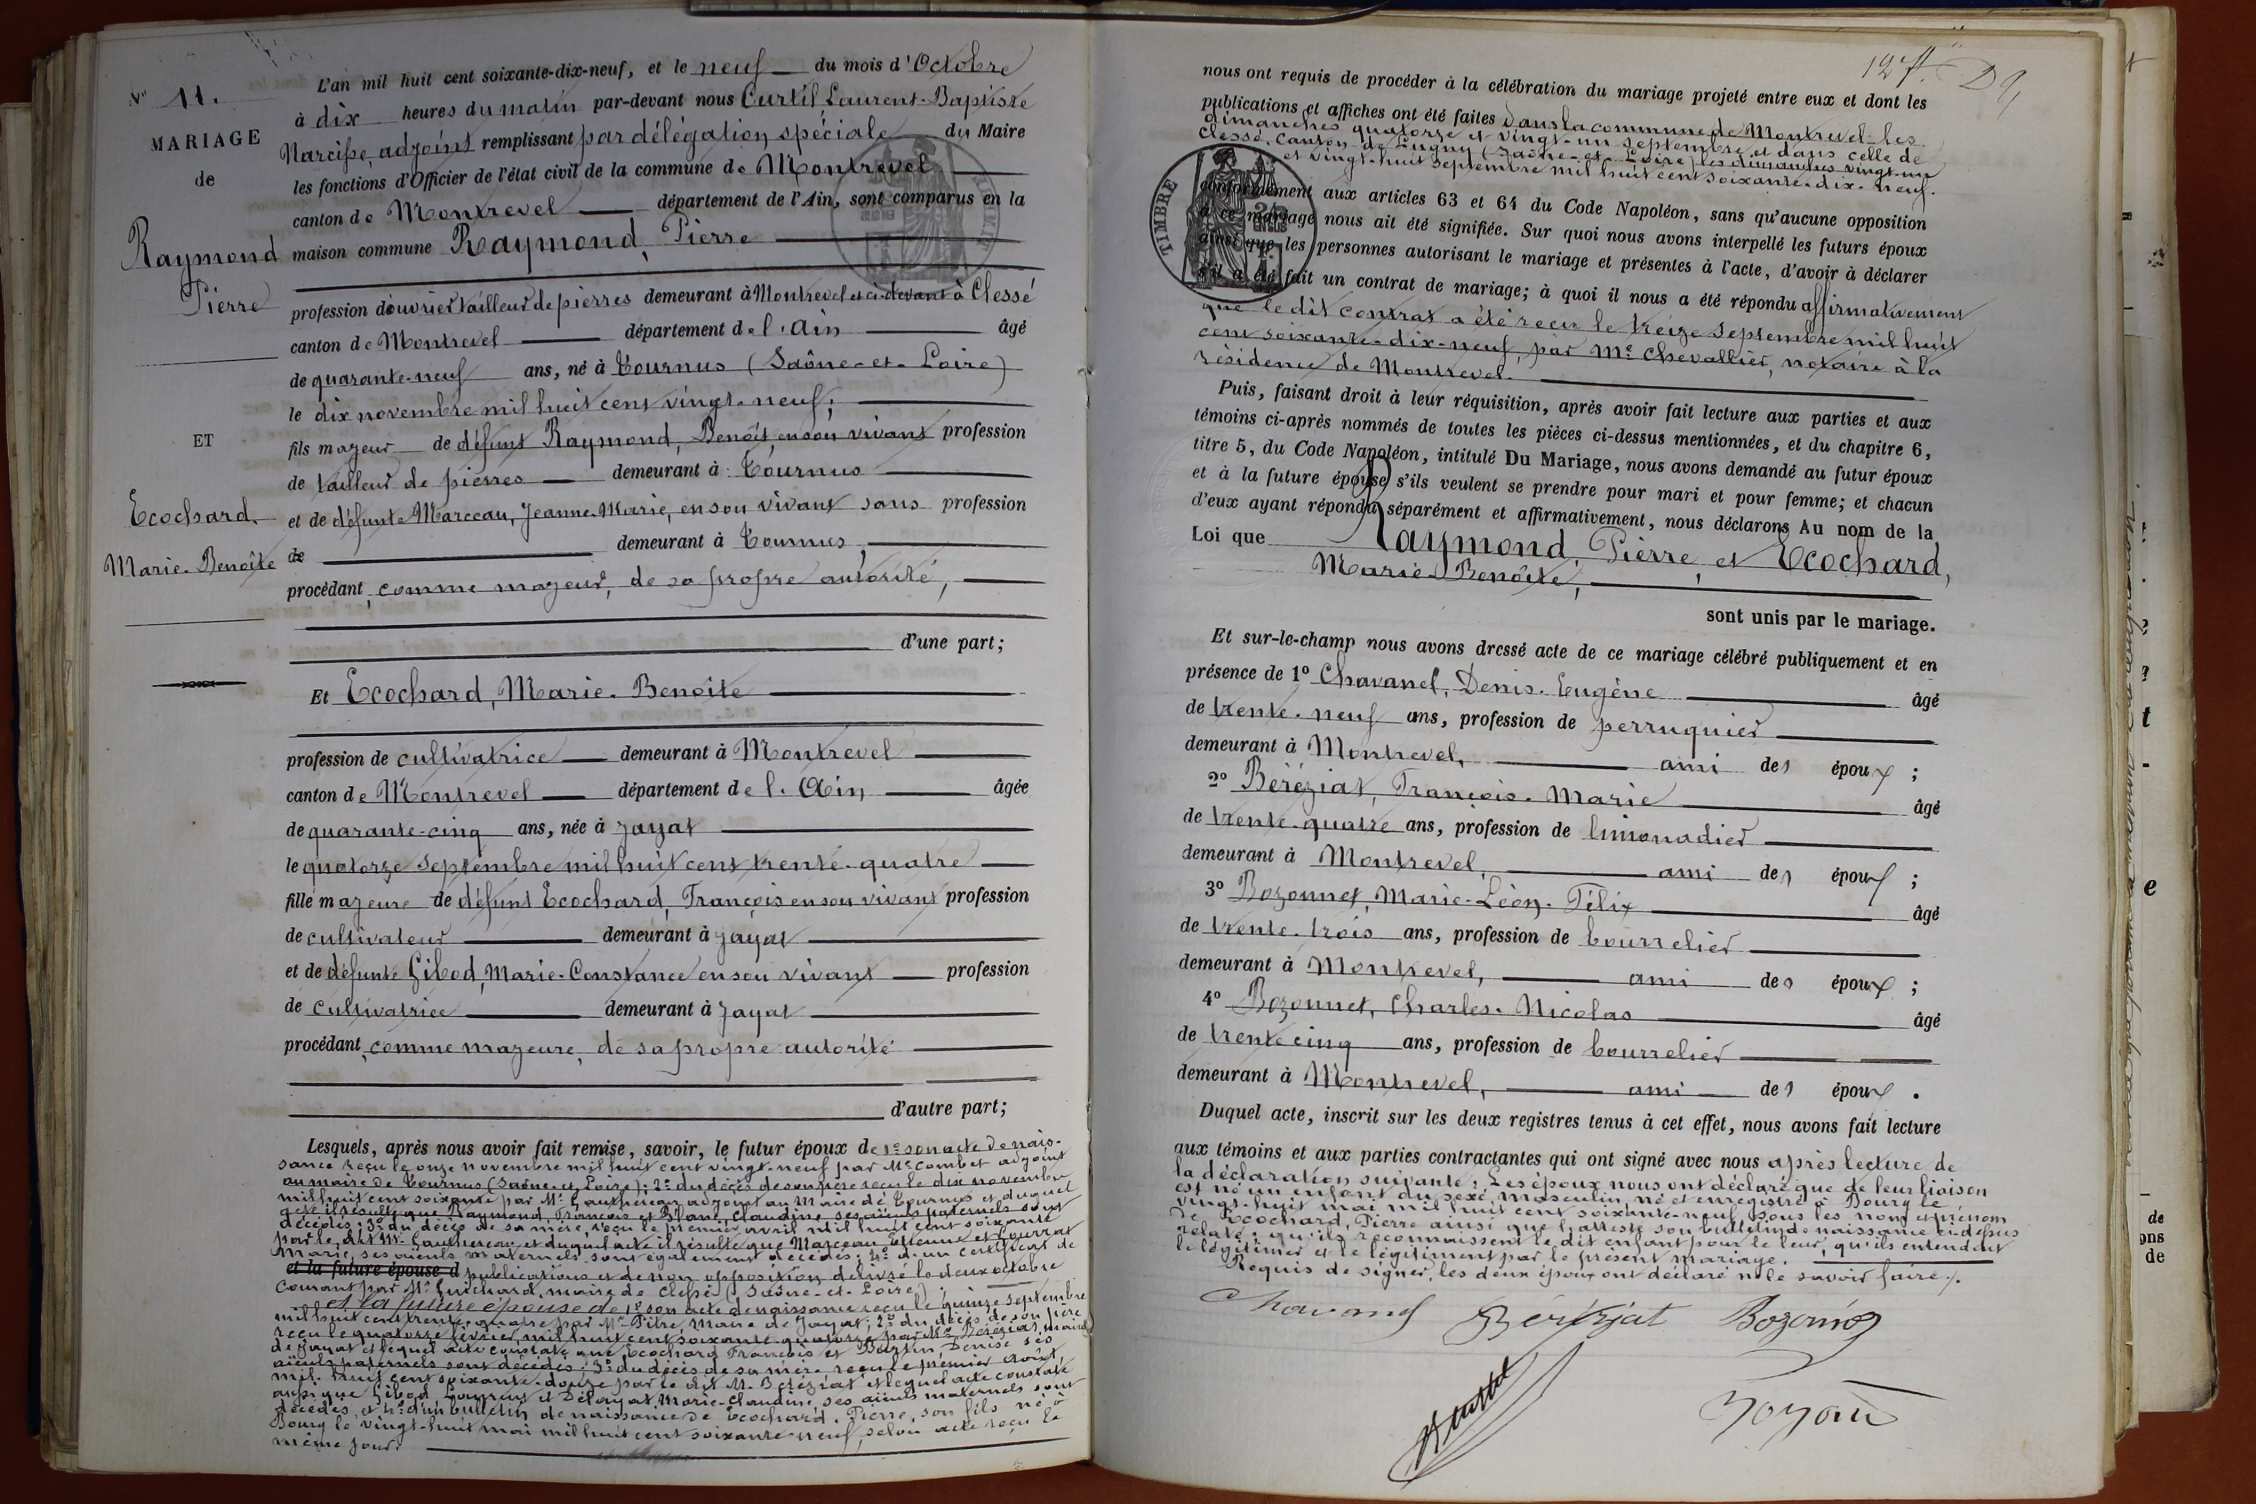 N° 11.
MARIAGE
de
Raymond
Pierre
ET
Ecochard
Marie-Benoîte
L'an mil huit cent soixante-dix-neuf, et le neuf du mois d'Octobre
à dix heures du matin par-devant nous Curtil Laurent-Baptiste
Narcisse, adjoint remplissant par délégation spéciale du Maire
les fonctions d'Officier de l'état civil de la commune de Montrevel
canton de Montrevel département de l'Ain, sont comparus en la
maison commune Raymond, Pierre
profession d'ouvrier tailleur de pierres demeurant à Montrevel et ci-devant à Clessé
canton de Montrevel département de l'Ain âgé
de quarante-neuf ans, né à Tournus (Saône-et-Loire)
le dix novembre mil huit cent vingt-neuf,
fils majeur de défunt Raymond, Benoît, en son vivant profession
de tailleur de pierres demeurant à Tournus
et de défunte Marceau, Jeanne-Marie, en son vivant sans profession
de demeurant à Tournus,
procédant comme majeur, de sa propre autorité,
d'une part;
Et Ecochard, Marie-Benoîte
profession de cultivatrice demeurant à Montrevel
canton de Montrevel département de l'Ain, âgée
de quarante-cinq ans, née à Jayat
le quatorze septembre mil huit cent trente-quatre
fille majeure de défunt Ecochard, François en son vivant profession
de cultivateur demeurant à Jayat
et de défunte Gibod, Marie-Constance en son vivant profession
de cultivatrice demeurant à Jayat
procédant, comme majeure, de sa propre autorité
d'autre part;
Lesquels, après nous avoir fait remise, savoir, le futur époux de 1° son acte de nais-
sance reçu le onze novembre mil huit cent vingt-neuf par Mr Combet adjoint
au maire de Tournus (Saône-et-Loire); 2° du décès de son père reçu le dix novembre
mil huit cent soixante par Mr Gauthereau adjoint au Maire de Tournus et duquel
acte il résulte que Raymond, François et Blanc, Claudine, ses aïeuls paternels sont
décédés; 3° du décès de sa mère, reçu le premier avril mil huit cent soixante
par le dit Mr Gauthereau et duquel acte il résulte que Marceau Etienne et
Marie, ses aïeuls maternels sont également décédés; 4° d'un certificat de
et la future épouse d publications et de non opposition délivré le deux octobre
courant par Mr Guichard, maire de Clessé (Saône-et-Loire);
et la future épouse de 1° son acte de naissance reçu le quinze septembre
mil huit cent trente-quatre par Mr Pitre, Maire de Jayat; 2° du décès de son père
reçu le quatorze février mil huit cent soixante-quatorze par Mr Béréziat, maire
de Jayat et lequel acte constate que Ecochard François et Bertin Denise ses
aïeuls paternels sont décédés; 3° du décès de sa mère reçu le premier août
mil huit cent soixante-douze par le dit M. Béréziat et lequel acte constate
aussi que Gibod Laurent et Délayat, Marie-Claudine, ses aïeuls maternels sont
décédés, et 4° d'un bulletin de naissance de Ecochard, Pierre, son fils né à
Bourg le vingt-huit mai mil huit cent soixante-neuf, selon acte reçu le
même jour.
127
nous ont requis de procéder à la célébration du mariage projeté entre eux et dont les
publications et affiches ont été faites dans la commune de Montrevel les
dimanches quatorze et vingt-un septembre et dans celle de
Clessé, Canton de Lugny (Saône-et-Loire) les dimanches vingt-un
et vingt-huit septembre mil huit cent soixante-dix-neuf.
TIMBRE
conformément aux articles 63 et 64 du Code Napoléon, sans qu'aucune opposition
à ce mariage nous ait été signifiée. Sur quoi nous avons interpellé les futurs époux
ainsi que les personnes autorisant le mariage et présentes à l'acte, d'avoir à déclarer
s'il a été fait un contrat de mariage; à quoi il nous a été répondu affirmativement
que le dit contrat a été reçu le treize septembre mil huit
cent soixante-dix-neuf, par Me Chevallier, notaire à la
résidence de Montrevel.
Puis, faisant droit à leur réquisition, après avoir fait lecture aux parties et aux
témoins ci-après nommés de toutes les pièces ci-dessus mentionnées, et du chapitre 6,
titre 5, du Code Napoléon, intitulé Du Mariage, nous avons demandé au futur époux
et à la future épouse s'ils veulent se prendre pour mari et pour femme; et chacun
d'eux ayant répondu séparément et affirmativement, nous déclarons Au nom de la
Loi que Raymond, Pierre, et Ecochard,
Marie-Benoîte,
sont unis par le mariage.
Et sur-le-champ nous avons dressé acte de ce mariage célébré publiquement et en
présence de 1° Chavanel, Denis-Eugène âgé
de trente-neuf ans, profession de perruquier
demeurant à Montrevel, ami des époux ;
2° Béréziat, François-Marie âgé
de trente-quatre ans, profession de limonadier
demeurant à Montrevel, ami des époux ;
3° Bozonnet, Marie-Léon-Félix âgé
de trente-trois ans, profession de bourrelier
demeurant à Montrevel, ami des époux ;
4° Bozonnet, Charles-Nicolas âgé
de trente cinq ans, profession de bourrelier
demeurant à Montrevel, ami des époux .
Duquel acte, inscrit sur les deux registres tenus à cet effet, nous avons fait lecture
aux témoins et aux parties contractantes qui ont signé avec nous après lecture de
la déclaration suivante: Les époux nous ont déclaré que de leur liaison
est né un enfant du sexe masculin, né et enregistré à Bourg le
vingt-huit mai mil huit cent soixante-neuf sous les nom et prénom
de Ecochard, Pierre ainsi que l'atteste son bulletin de naissance ci-dessus
relaté; qu'ils reconnaissent le dit enfant pour le leur, qu'ils entendent
le légitimer et le légitiment par le présent mariage.
Requis de signer, les deux époux ont déclaré ne le savoir faire.
Chavanel Béréziat